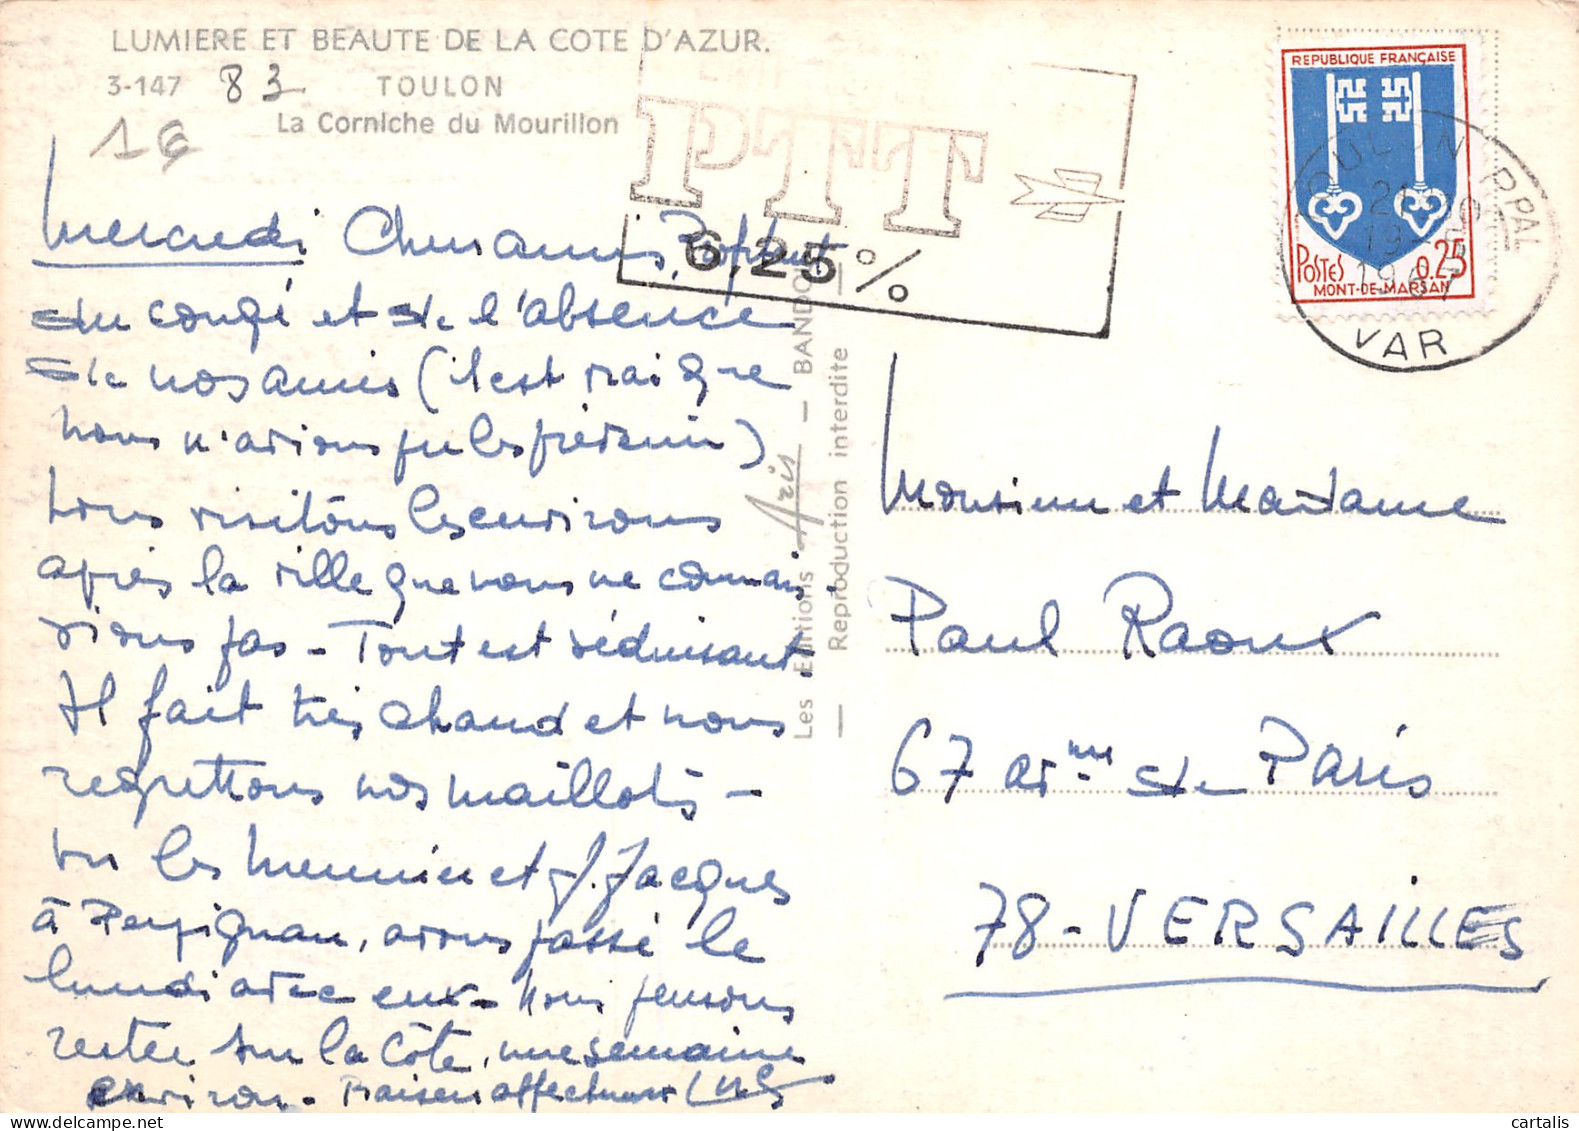 LUMIERE ET BEAUTE DE LA COTE D'AZUR.
3-147 83 TOULON
La Corniche du Mourillon
1€
PTT
6,25 %
REPUBLIQUE FRANÇAISE
POSTES 0.25
MONT-DE-MARSAN
TOULON PPAL
19-6
1967
VAR
Mercredi Chers amis, Profitant
du congé et de l'absence
de nos amis (il est vrai que
nous n'avions pu les prévenir)
nous visitons les environs
après la ville que nous ne connais-
sions pas - Tout est séduisant
Il fait très chaud et nous
regrettons nos maillots -
vu les Meunier et J. Jacques
à Perpignan, avons passé le
lundi avec eux - Nous pensons
rester sur la Côte, une semaine
environ - Baisers affectueux
Les Editions Aris — BANDOL
— Reproduction interdite —
Monsieur et Madame
Paul Raoux
67 avenue de Paris
78 - VERSAILLES
cartalis